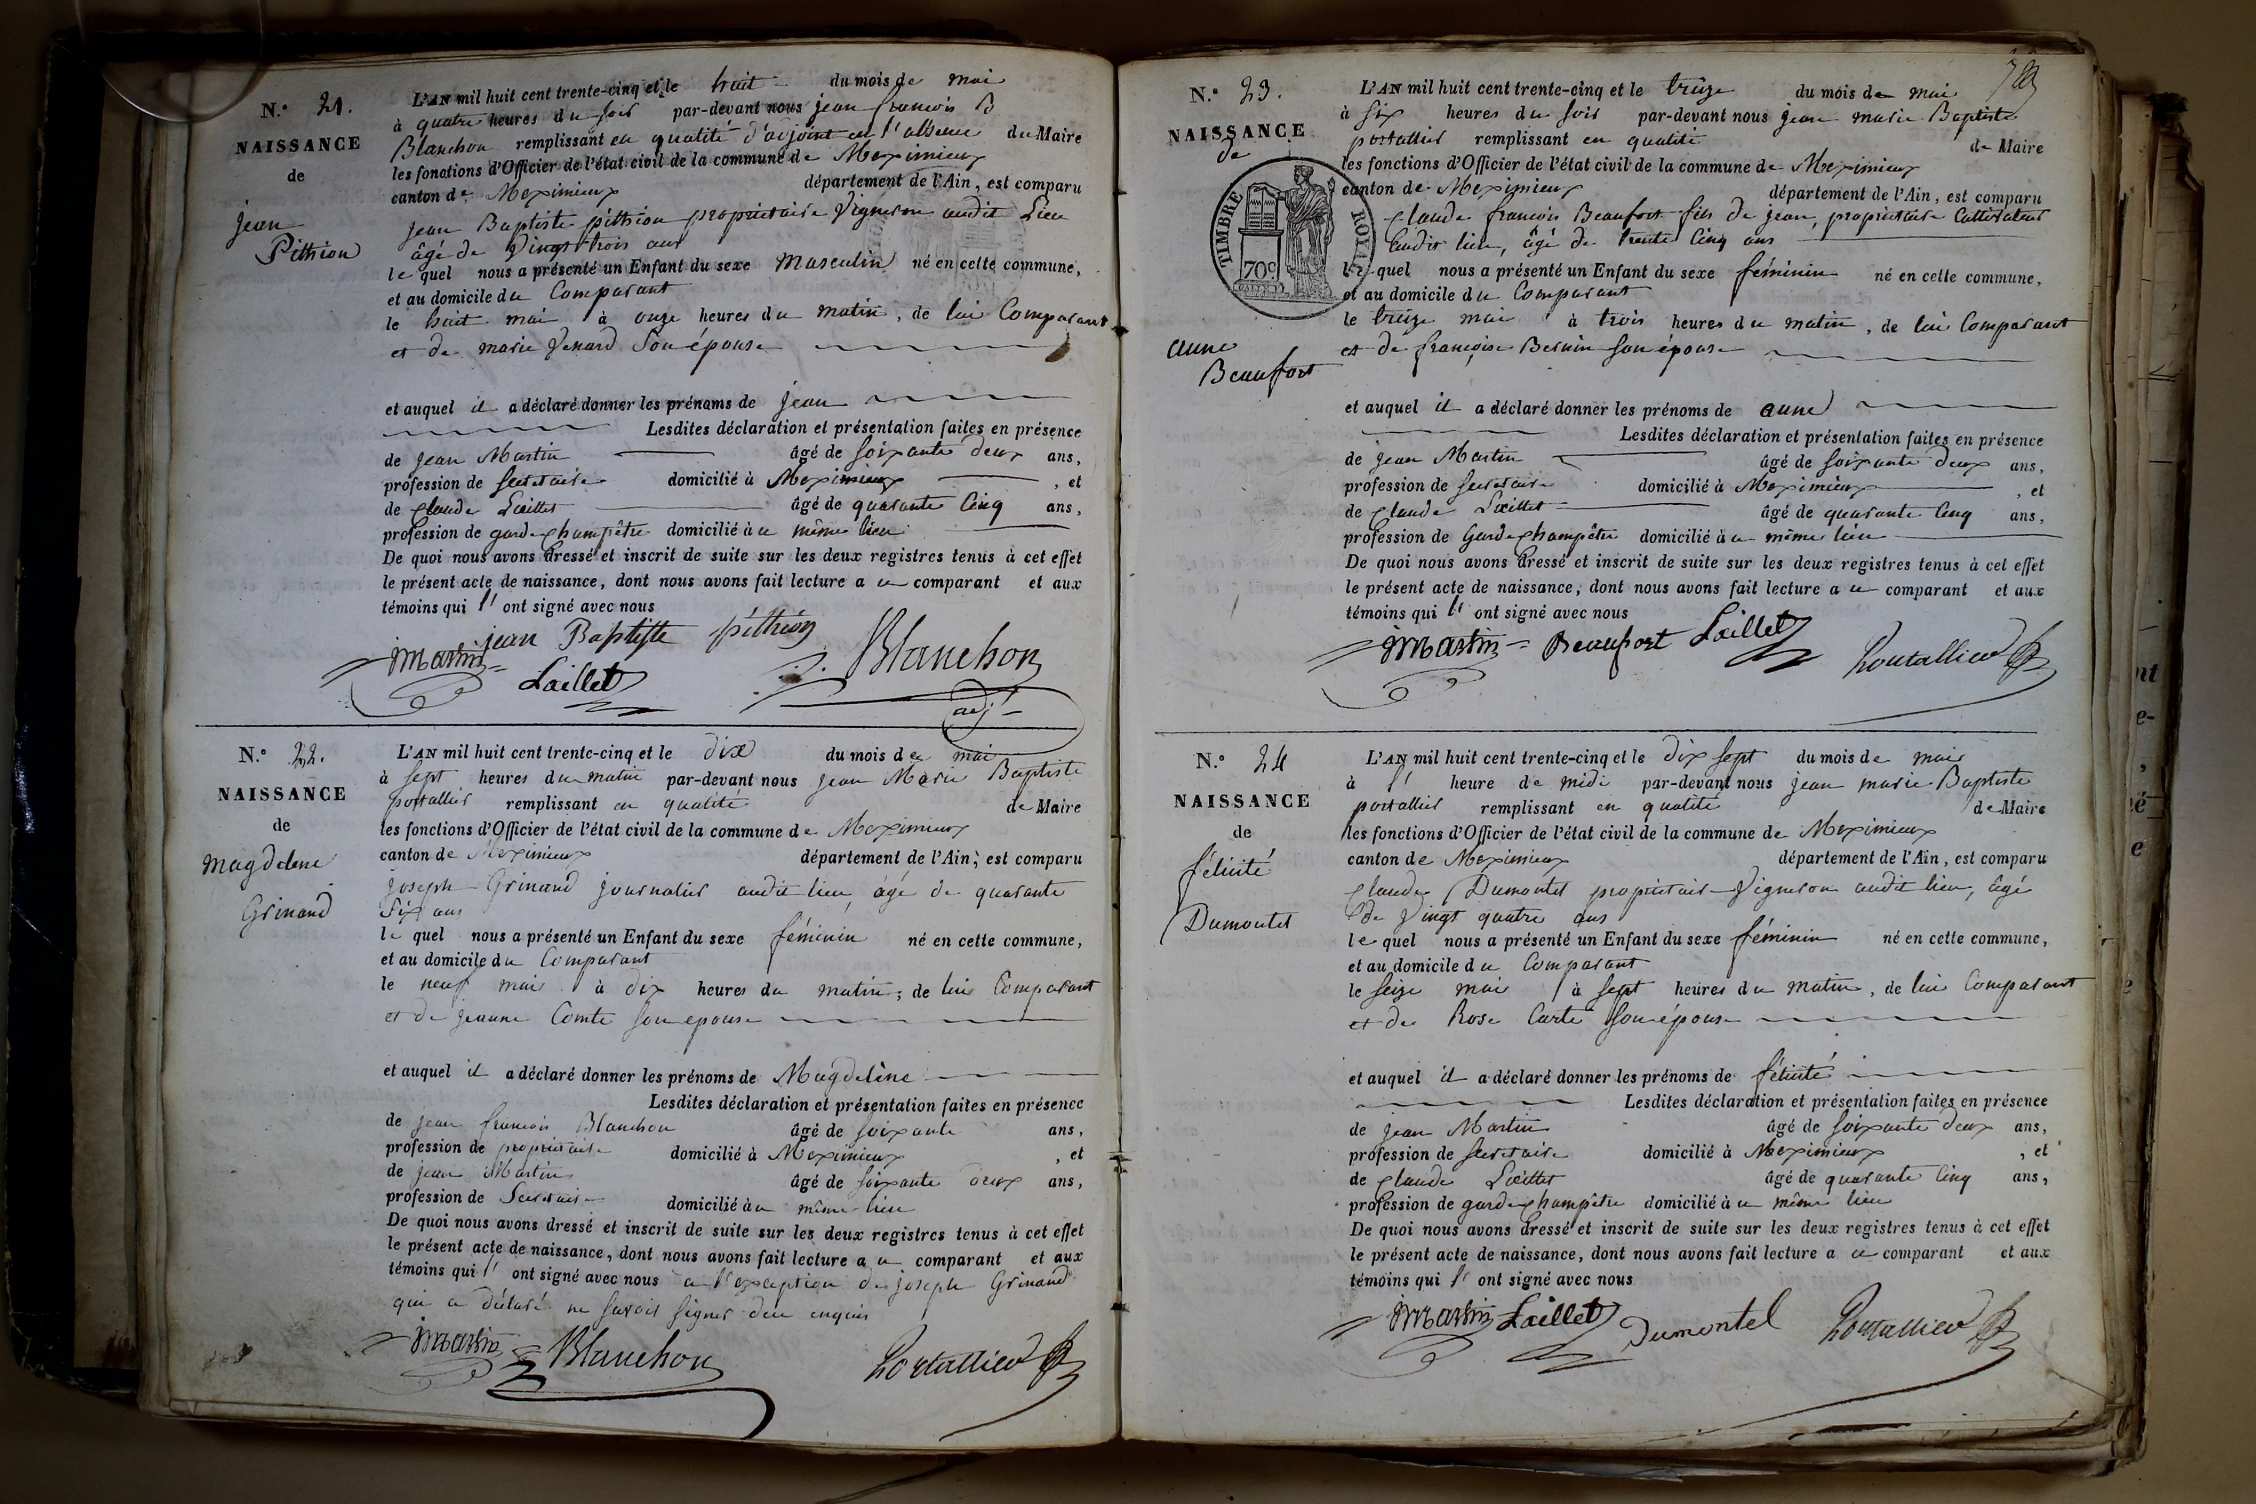 N.° 21.
NAISSANCE
de
jean
Pithion
L'AN mil huit cent trente-cinq et le huit du mois de mai
à quatre heures du soir par-devant nous jean francois B
Blanchon remplissant en qualité d'adjoint en l'absence du Maire
les fonctions d'Officier de l'état civil de la commune de Meximieux
canton de Meximieux département de l'Ain, est comparu
jean Baptiste pithion propriétaire Vigneron audit Lieu
âgé de Vingt trois ans
le quel nous a présenté un Enfant du sexe Masculin né en cette commune,
et au domicile du Comparant
le huit mai à onze heures du matin, de lui Comparant
et de marie Venard Son épouse
et auquel il a déclaré donner les prénoms de jean
Lesdites déclaration et présentation faites en présence
de jean Martin âgé de soixante deux ans,
profession de secretaire domicilié à Meximieux, et
de claude Laillet âgé de quarante Cinq ans,
profession de garde champêtre domicilié au même lieu
De quoi nous avons dressé et inscrit de suite sur les deux registres tenus à cet effet
le présent acte de naissance, dont nous avons fait lecture a u comparant et aux
témoins qui l' ont signé avec nous
jean Baptiste pithion
jmartin Laillet Blanchon
adj
N.° 22.
NAISSANCE
de
Magdelene
Grinand
L'AN mil huit cent trente-cinq et le dix du mois de mai
à sept heures du matin par-devant nous jean Marie Baptiste
portallier remplissant en qualité de Maire
les fonctions d'Officier de l'état civil de la commune de Meximieux
canton de Meximieux département de l'Ain, est comparu
joseph Grinand journalier audit lieu, âgé de quarante
six ans
le quel nous a présenté un Enfant du sexe féminin né en cette commune,
et au domicile du Comparant
le neuf mai à dix heures du matin, de lui Comparant
et de jeanne Comte son épouse
et auquel il a déclaré donner les prénoms de Magdelène
Lesdites déclaration et présentation faites en présence
de jean francois Blanchon âgé de soixante ans,
profession de propriétaire domicilié à Meximieux, et
de jean Martin âgé de soixante deux ans,
profession de Secretaire domicilié au même lieu
De quoi nous avons dressé et inscrit de suite sur les deux registres tenus à cet effet
le présent acte de naissance, dont nous avons fait lecture a u comparant et aux
témoins qui l' ont signé avec nous a l'exception de joseph Grinand
qui a déclaré ne savoir signer deu enquis
jmartin Blanchon Portallier
N.° 23.
NAISSANCE
de
TIMBRE ROYAL
70c
anne
Beauffort
L'AN mil huit cent trente-cinq et le treize du mois de mai
à six heures du soir par-devant nous jean marie Baptiste
portallier remplissant en qualité de Maire
les fonctions d'Officier de l'état civil de la commune de Meximieux
canton de Meximieux département de l'Ain, est comparu
claude francois Beaufort fils de jean, propriétaire Cultivateur
audit lieu, âgé de trente Cinq ans
le quel nous a présenté un Enfant du sexe féminin né en cette commune,
et au domicile du Comparant
le treize mai à trois heures du matin, de lui Comparant
et de françoise Bernin son épouse
et auquel il a déclaré donner les prénoms de anne
Lesdites déclaration et présentation faites en présence
de jean Martin âgé de soixante deux ans,
profession de secretaire domicilié à Meximieux, et
de claude Laillet âgé de quarante Cinq ans,
profession de Garde champêtre domicilié au même lieu
De quoi nous avons dressé et inscrit de suite sur les deux registres tenus à cet effet
le présent acte de naissance, dont nous avons fait lecture a u comparant et aux
témoins qui l' ont signé avec nous
jmartin Beaufort Laillet Portallier
N.° 24
NAISSANCE
de
félicité
Dumontet
L'AN mil huit cent trente-cinq et le dix sept du mois de mai
à l' heure de midi par-devant nous jean marie Baptiste
portallier remplissant en qualité de Maire
les fonctions d'Officier de l'état civil de la commune de Meximieux
canton de Meximieux département de l'Ain, est comparu
claude Dumontet propriétaire Vigneron audit lieu, âgé
de Vingt quatre ans
le quel nous a présenté un Enfant du sexe féminin né en cette commune,
et au domicile du Comparant
le seize mai à sept heures du matin, de lui Comparant
et de Rose Carte son épouse
et auquel il a déclaré donner les prénoms de félicité
Lesdites déclaration et présentation faites en présence
de jean Martin âgé de soixante deux ans,
profession de secretaire domicilié à Meximieux, et
de claude Laillet âgé de quarante Cinq ans,
profession de garde champêtre domicilié au même lieu
De quoi nous avons dressé et inscrit de suite sur les deux registres tenus à cet effet
le présent acte de naissance, dont nous avons fait lecture a u comparant et aux
témoins qui l' ont signé avec nous
jmartin Laillet Dumontel Portallier